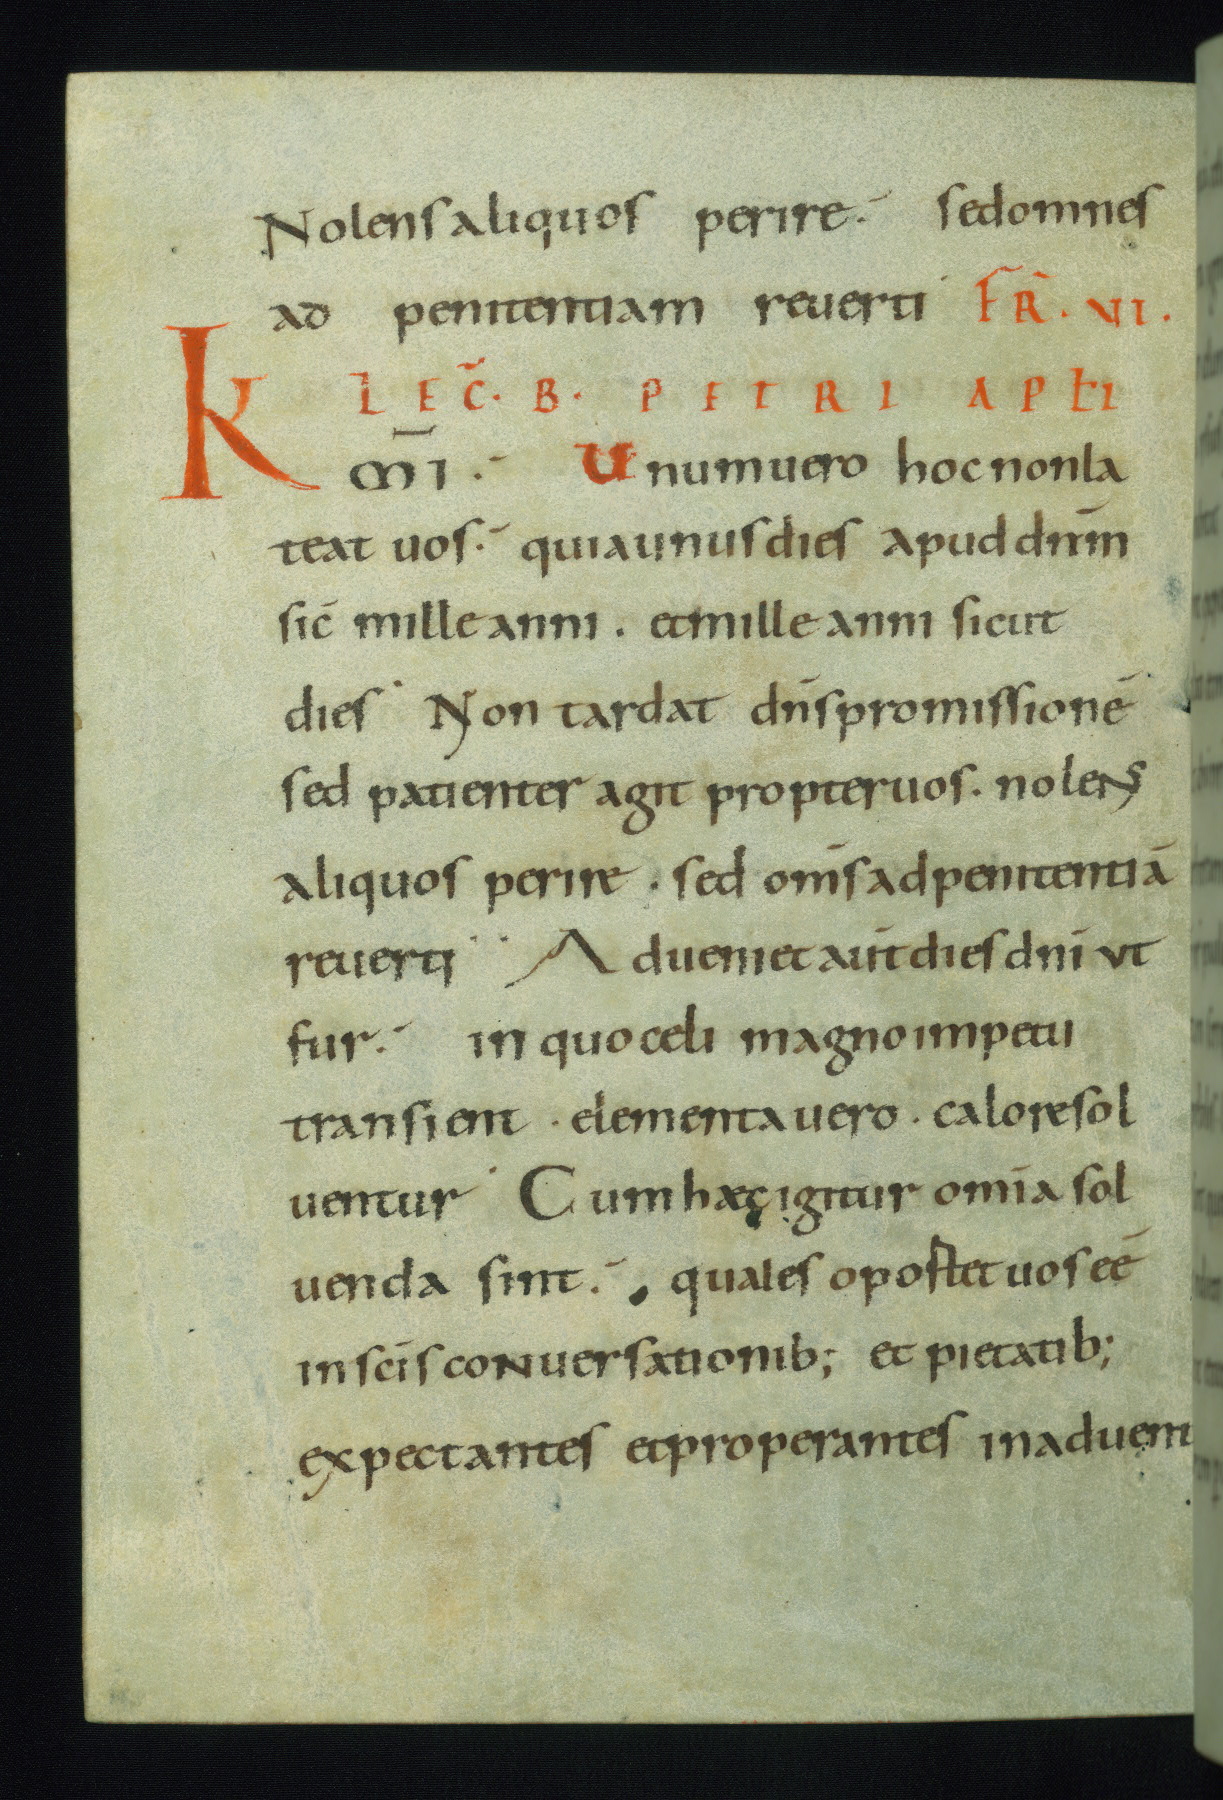 Nolens aliquos perire. sed omnes
ad penitentiam reuerti FR̄. VI.
LEC̄. B. PETRI APŁI
K m̄i. Unum uero hoc non la
teat uos. quia unus dies apud dnm̄
sic̄ mille anni. et mille anni sicut
dies Non tardat dn̄s promissionē
sed patienter agit propter uos. nolens
aliquos perire. sed om̄s ad penitentiā
reuerti Adueniet aūt dies dn̄i ut
fur. in quo celi magno impetu
transient. elementa uero. calore sol
uentur Cum hæc igitur om̄ia sol
uenda sint. quales oportet uos eē
in sc̄is conuersationib; et pietatib;
expectantes et properantes in aduent